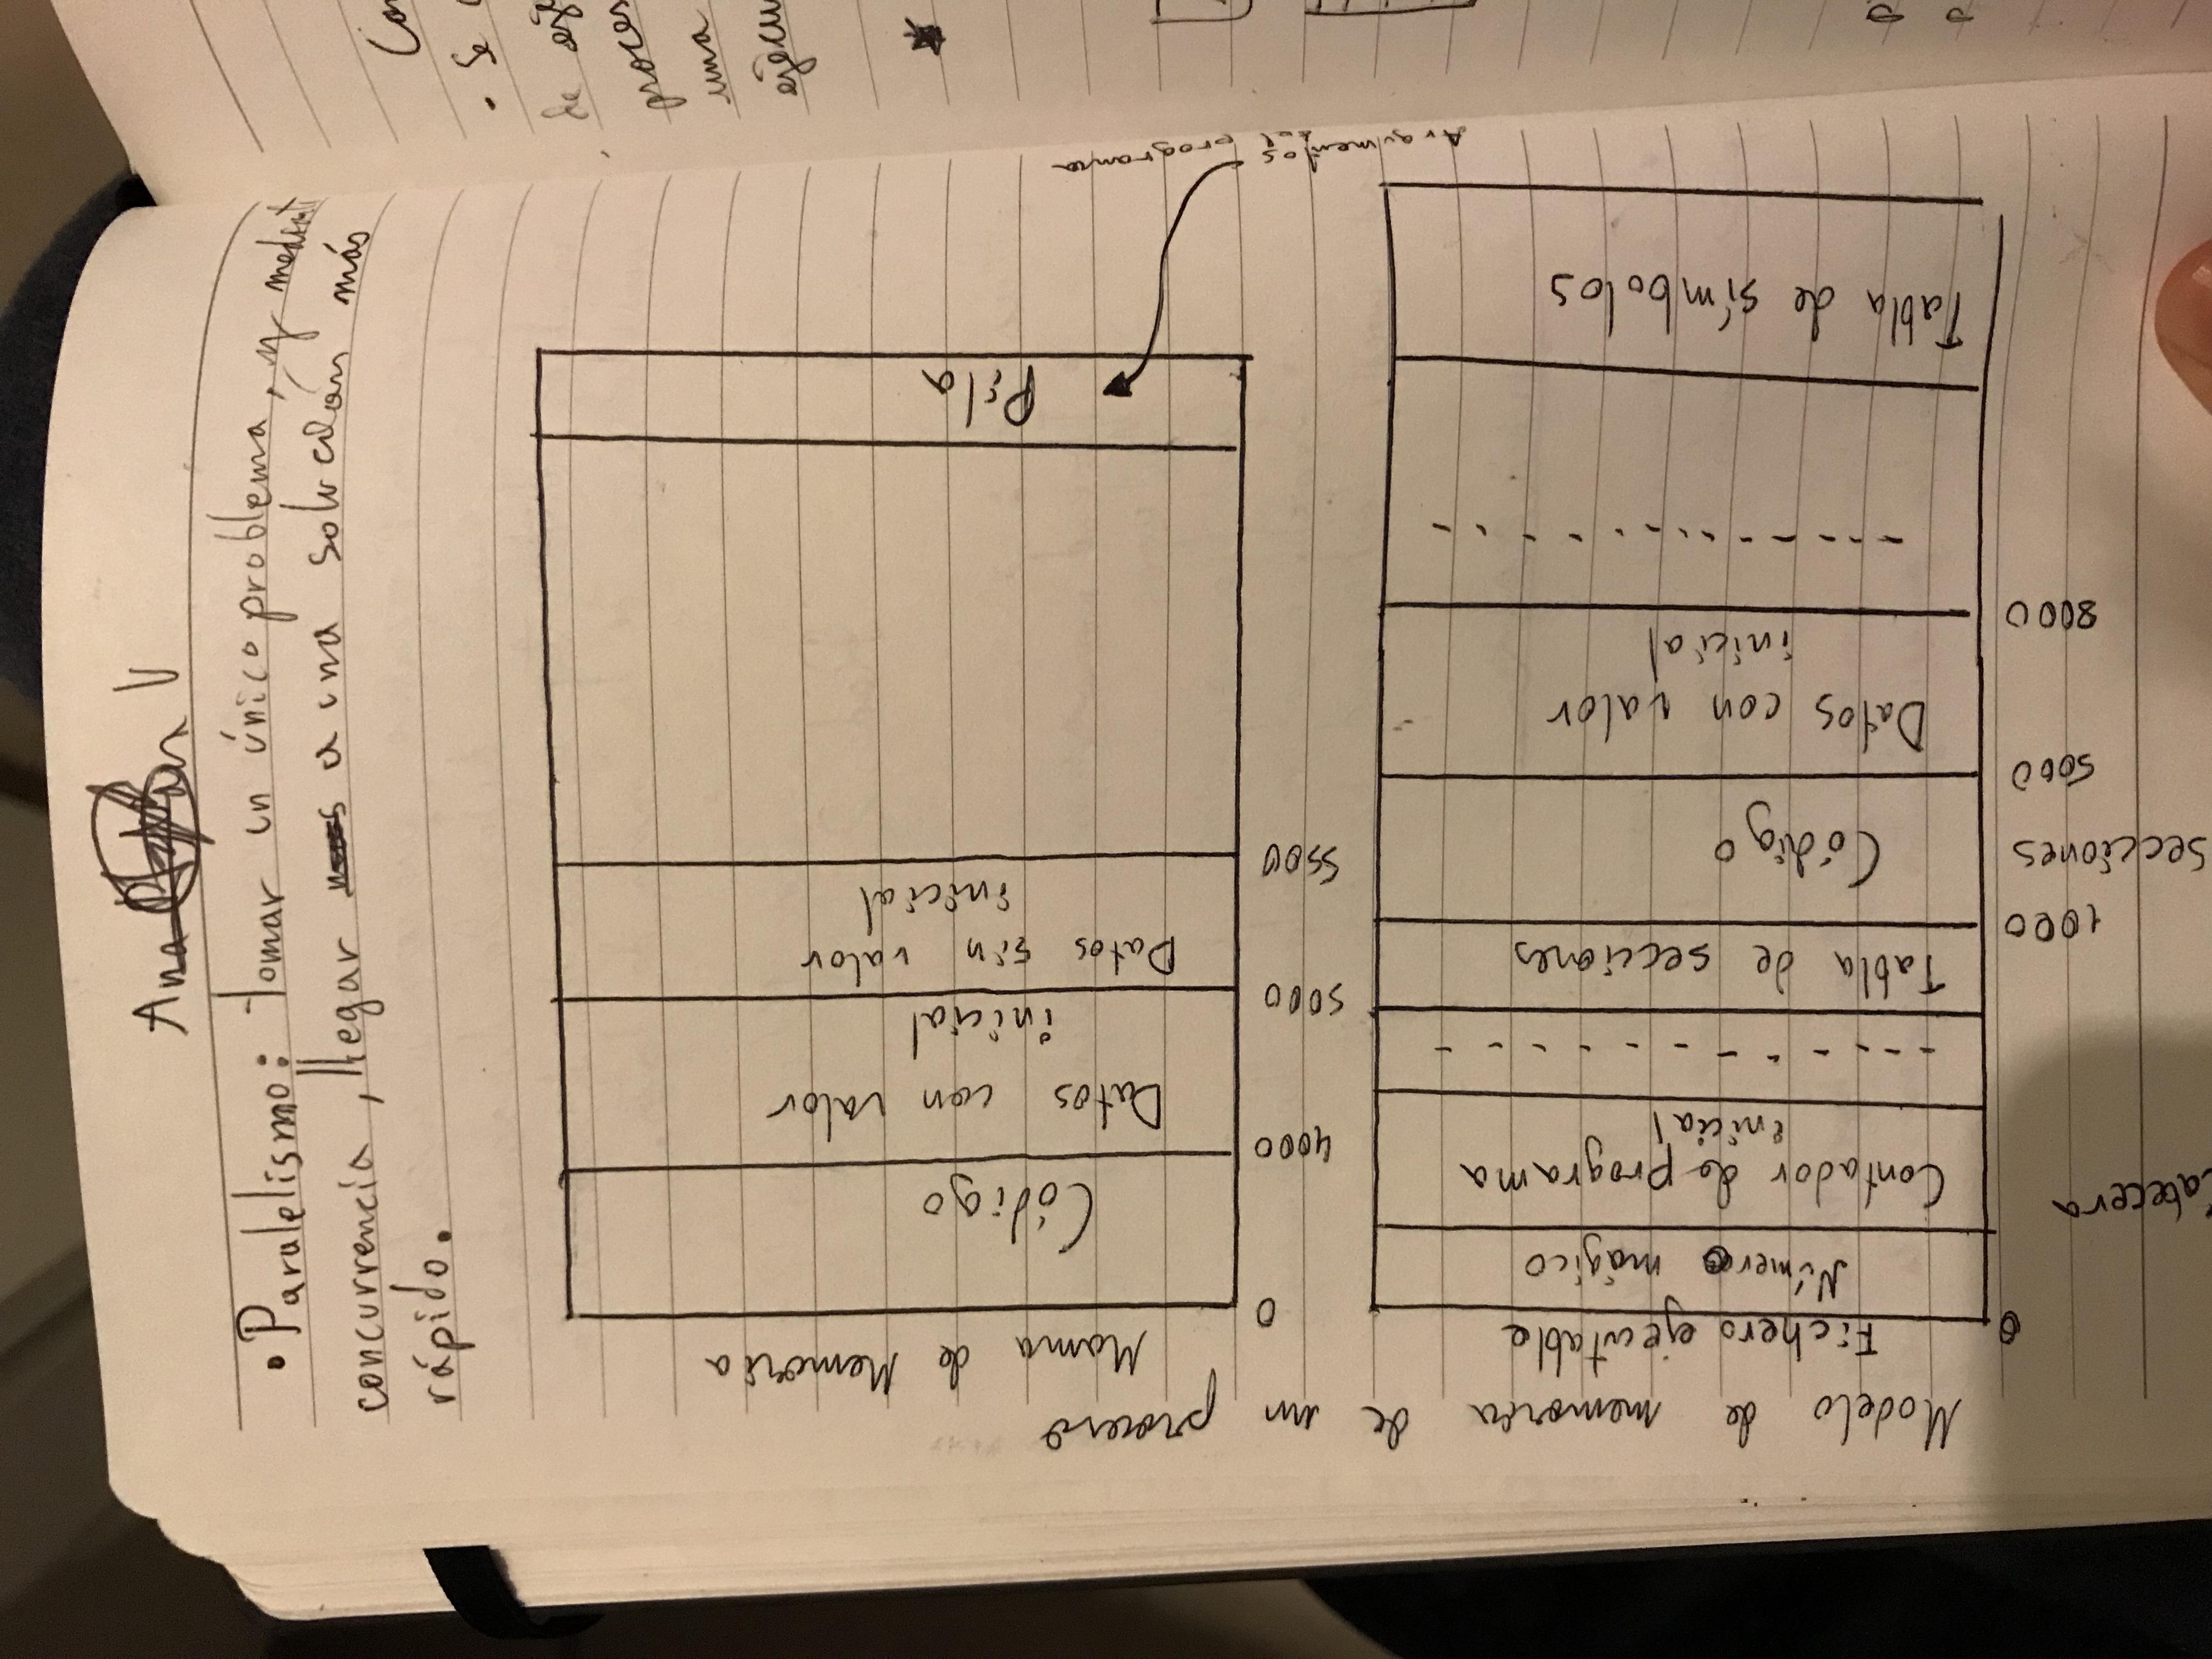 Ana V
• Paralelismo: tomar un único problema, y mediant
concurrencia, llegar a una solución más
rápido.
Modelo de memoria de un proceso
Fichero ejecutable
Cabecera
0
Número mágico
Contador de Programa
inicial
Tabla de secciones
1000
Secciones
Código
5000
Datos con valor
inicial
8000
Tabla de símbolos
Mama de Memoria
0
Código
4000
Datos con valor
inicial
5000
Datos sin valor
inicial
5500
Pila
Argumentos
del programa
Con
- Se
de eje
proces
una
ejecu